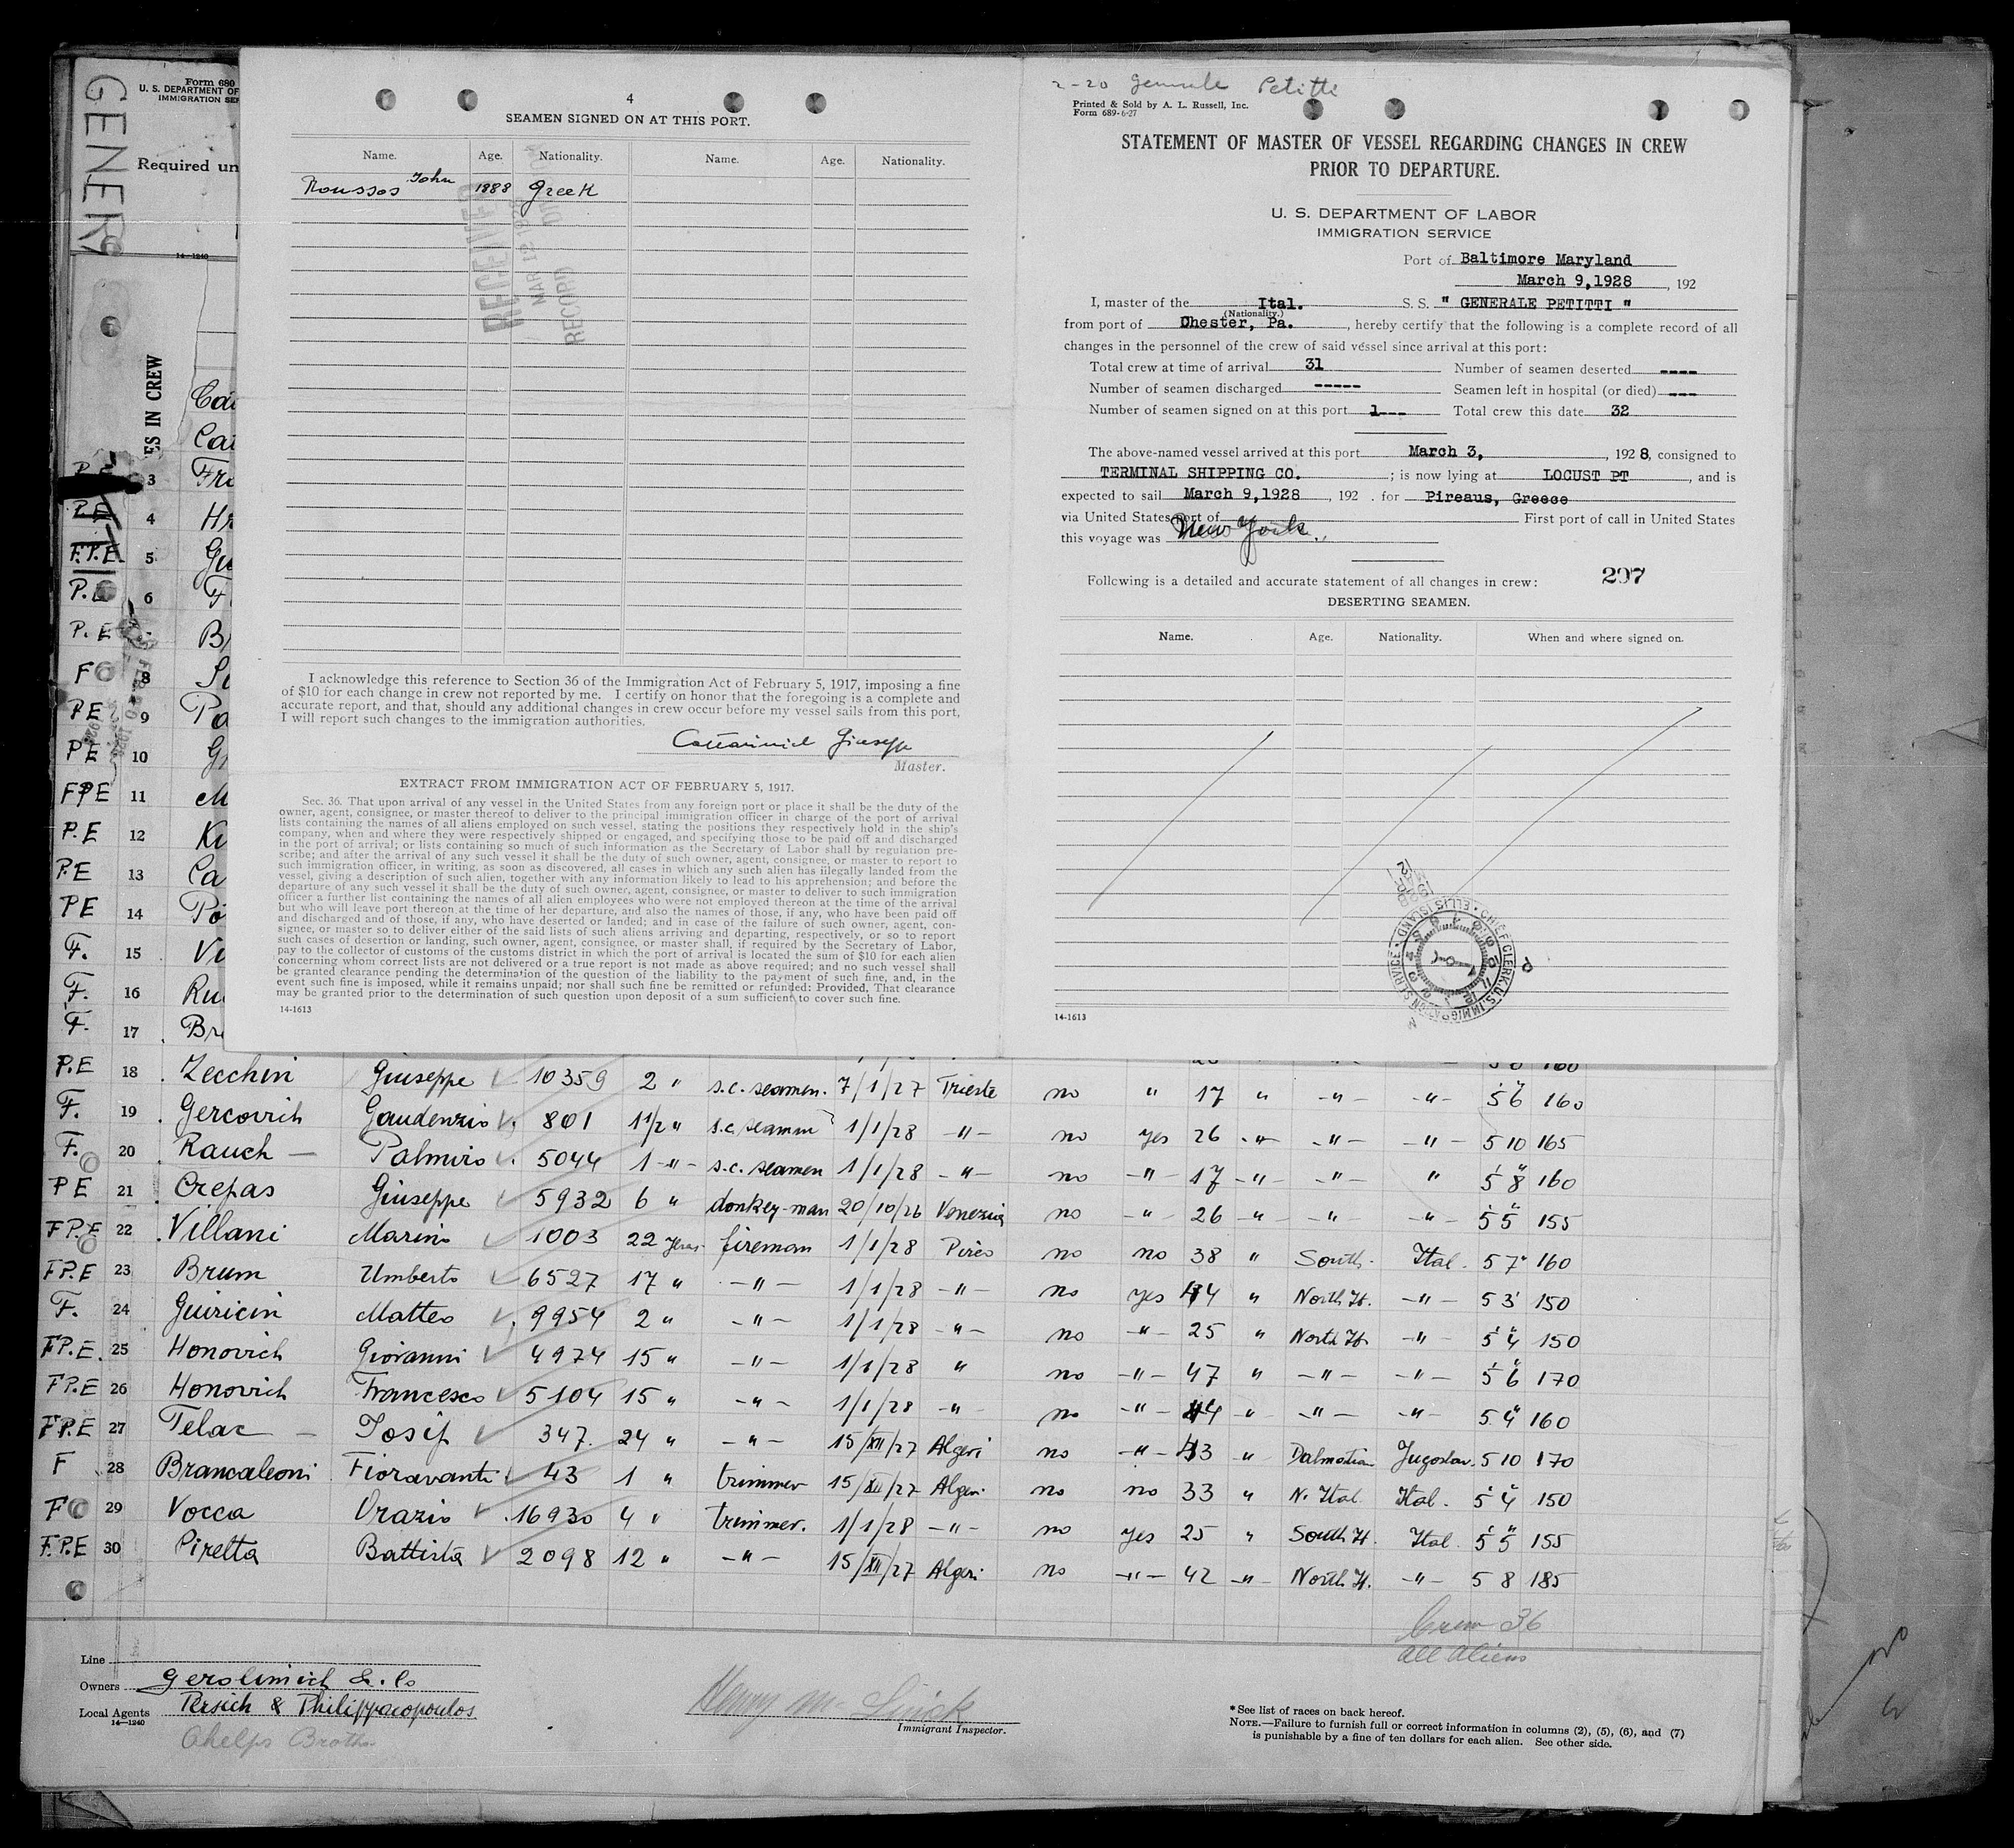 GENER
Form 680
U. S. DEPARTMENT OF
IMMIGRATION SER
Required un
14-1240
ES IN CREW
4
SEAMEN SIGNED ON AT THIS PORT.
Name. Age. Nationality. Name. Age. Nationality.
Roussos John 1888 Greek
RECEIVED
MAR 12 1928
RECORD
I acknowledge this reference to Section 36 of the Immigration Act of February 5, 1917, imposing a fine
of $10 for each change in crew not reported by me. I certify on honor that the foregoing is a complete and
accurate report, and that, should any additional changes in crew occur before my vessel sails from this port,
I will report such changes to the immigration authorities.
Master.
EXTRACT FROM IMMIGRATION ACT OF FEBRUARY 5, 1917.
Sec. 36. That upon arrival of any vessel in the United States from any foreign port or place it shall be the duty of the
owner, agent, consignee, or master thereof to deliver to the principal immigration officer in charge of the port of arrival
lists containing the names of all aliens employed on such vessel, stating the positions they respectively hold in the ship's
company, when and where they were respectively shipped or engaged, and specifying those to be paid off and discharged
in the port of arrival; or lists containing so much of such information as the Secretary of Labor shall by regulation pre-
scribe; and after the arrival of any such vessel it shall be the duty of such owner, agent, consignee, or master to report to
such immigration officer, in writing, as soon as discovered, all cases in which any such alien has illegally landed from the
vessel, giving a description of such alien, together with any information likely to lead to his apprehension; and before the
departure of any such vessel it shall be the duty of such owner, agent, consignee, or master to deliver to such immigration
officer a further list containing the names of all alien employees who were not employed thereon at the time of the arrival
but who will leave port thereon at the time of her departure, and also the names of those, if any, who have been paid off
and discharged and of those, if any, who have deserted or landed; and in case of the failure of such owner, agent, con-
signee, or master so to deliver either of the said lists of such aliens arriving and departing, respectively, or so to report
such cases of desertion or landing, such owner, agent, consignee, or master shall, if required by the Secretary of Labor,
pay to the collector of customs of the customs district in which the port of arrival is located the sum of $10 for each alien
concerning whom correct lists are not delivered or a true report is not made as above required; and no such vessel shall
be granted clearance pending the determination of the question of the liability to the payment of such fine, and, in the
event such fine is imposed, while it remains unpaid; nor shall such fine be remitted or refunded: Provided, That clearance
may be granted prior to the determination of such question upon deposit of a sum sufficient to cover such fine.
14-1613
2-20 Generale Petitti
Printed & Sold by A. L. Russell, Inc.
Form 689-6-27
STATEMENT OF MASTER OF VESSEL REGARDING CHANGES IN CREW
PRIOR TO DEPARTURE.
U. S. DEPARTMENT OF LABOR
IMMIGRATION SERVICE
Port of Baltimore Maryland
March 9,1928, 192
I, master of the Ital. S. S. " GENERALE PETITTI "
(Nationality.)
from port of Chester, Pa., hereby certify that the following is a complete record of all
changes in the personnel of the crew of said vessel since arrival at this port:
Total crew at time of arrival 31 Number of seamen deserted ----
Number of seamen discharged ----- Seamen left in hospital (or died) ---
Number of seamen signed on at this port 1--- Total crew this date 32
The above-named vessel arrived at this port March 3, , 1928, consigned to
TERMINAL SHIPPING CO. ; is now lying at LOCUST PT , and is
expected to sail March 9,1928 , 192 . for Pireaus, Greece
via United States port of First port of call in United States
this voyage was New York.
Following is a detailed and accurate statement of all changes in crew: 297
DESERTING SEAMEN.
Name. Age. Nationality. When and where signed on.
CHIEF CLERK, U.S. IMMIGRATION SERVICE • ELLIS ISLAND •
14-1613
P.E 3 Fr
P.E 4 Hr
F.P.E. 5 Gu
P.E 6 F
P.E B
F 8 Su
PE 9 Pa
PE 10 G
FPE 11 M
P.E 12 Ku
P.E 13 Ca
PE 14 Po
F. 15 Vi
F. 16 Ru
F. 17 Br
P.E 18 Zecchin Giuseppe 10359 2 " s.c. seamen. 7/1/27 Trieste no " 17 " -"- -"- 5 6 160
F. 19 Gercovich Gaudenzio 801 1 1/2 " s.c seamen 1/1/28 -"- no yes 26 -"- -"- -"- 5 10 165
F. 20 Rauch Palmiro 5044 1 -"- s.c. seamen 1/1/28 -"- no -"- 17 -"- -"- " 5 8 160
PE 21 Crepas Giuseppe 5932 6 " donkey-man 20/10/26 Venezia no -"- 26 -"- -"- -"- 5 5 155
F.P.E 22 Villani Marino 1003 22 years fireman 1/1/28 Pireo no no 38 " South. Ital. 5 7 160
F.P.E 23 Brum Umberto 6527 17 " -"- 1/1/28 -"- no yes 44 " North It. -"- 5 3 150
F. 24 Guiricin Matteo 9954 2 " -"- 1/1/28 -"- no -"- 25 " North It. -"- 5 4 150
F.P.E. 25 Honovich Giovanni 4974 15 " -"- 1/1/28 " no -"- 47 " -"- -"- 5 6 170
F.P.E 26 Honovich Francesco 5104 15 " -"- 1/1/28 -"- no -"- 44 -"- -"- -"- 5 4 160
F.P.E 27 Telac Josip 347. 24 " -"- 15/XII/27 Algeri no -"- 43 -"- Dalmatian Jugoslav. 5 10 170
F 28 Brancaleoni Fioravante 43 1 " trimmer 15/XII/27 Algeri no no 33 " N. Ital. Ital. 5 4 150
F 29 Vocca Orazio 16930 4 " trimmer. 1/1/28 -"- no yes 25 " South It. Ital. 5 5 155
F.P.E 30 Piretta Battista 2098 12 " -"- 15/XII/27 Algeri no -"- 42 -"- North It. -"- 5 8 185
Crew 36
all aliens
Line
Owners Gerolimich & Co
Local Agents Persich & Philippacopoulos
14-1240
Phelps Broths
Henry M.
Immigrant Inspector.
* See list of races on back hereof.
NOTE.—Failure to furnish full or correct information in columns (2), (5), (6), and (7)
is punishable by a fine of ten dollars for each alien. See other side.